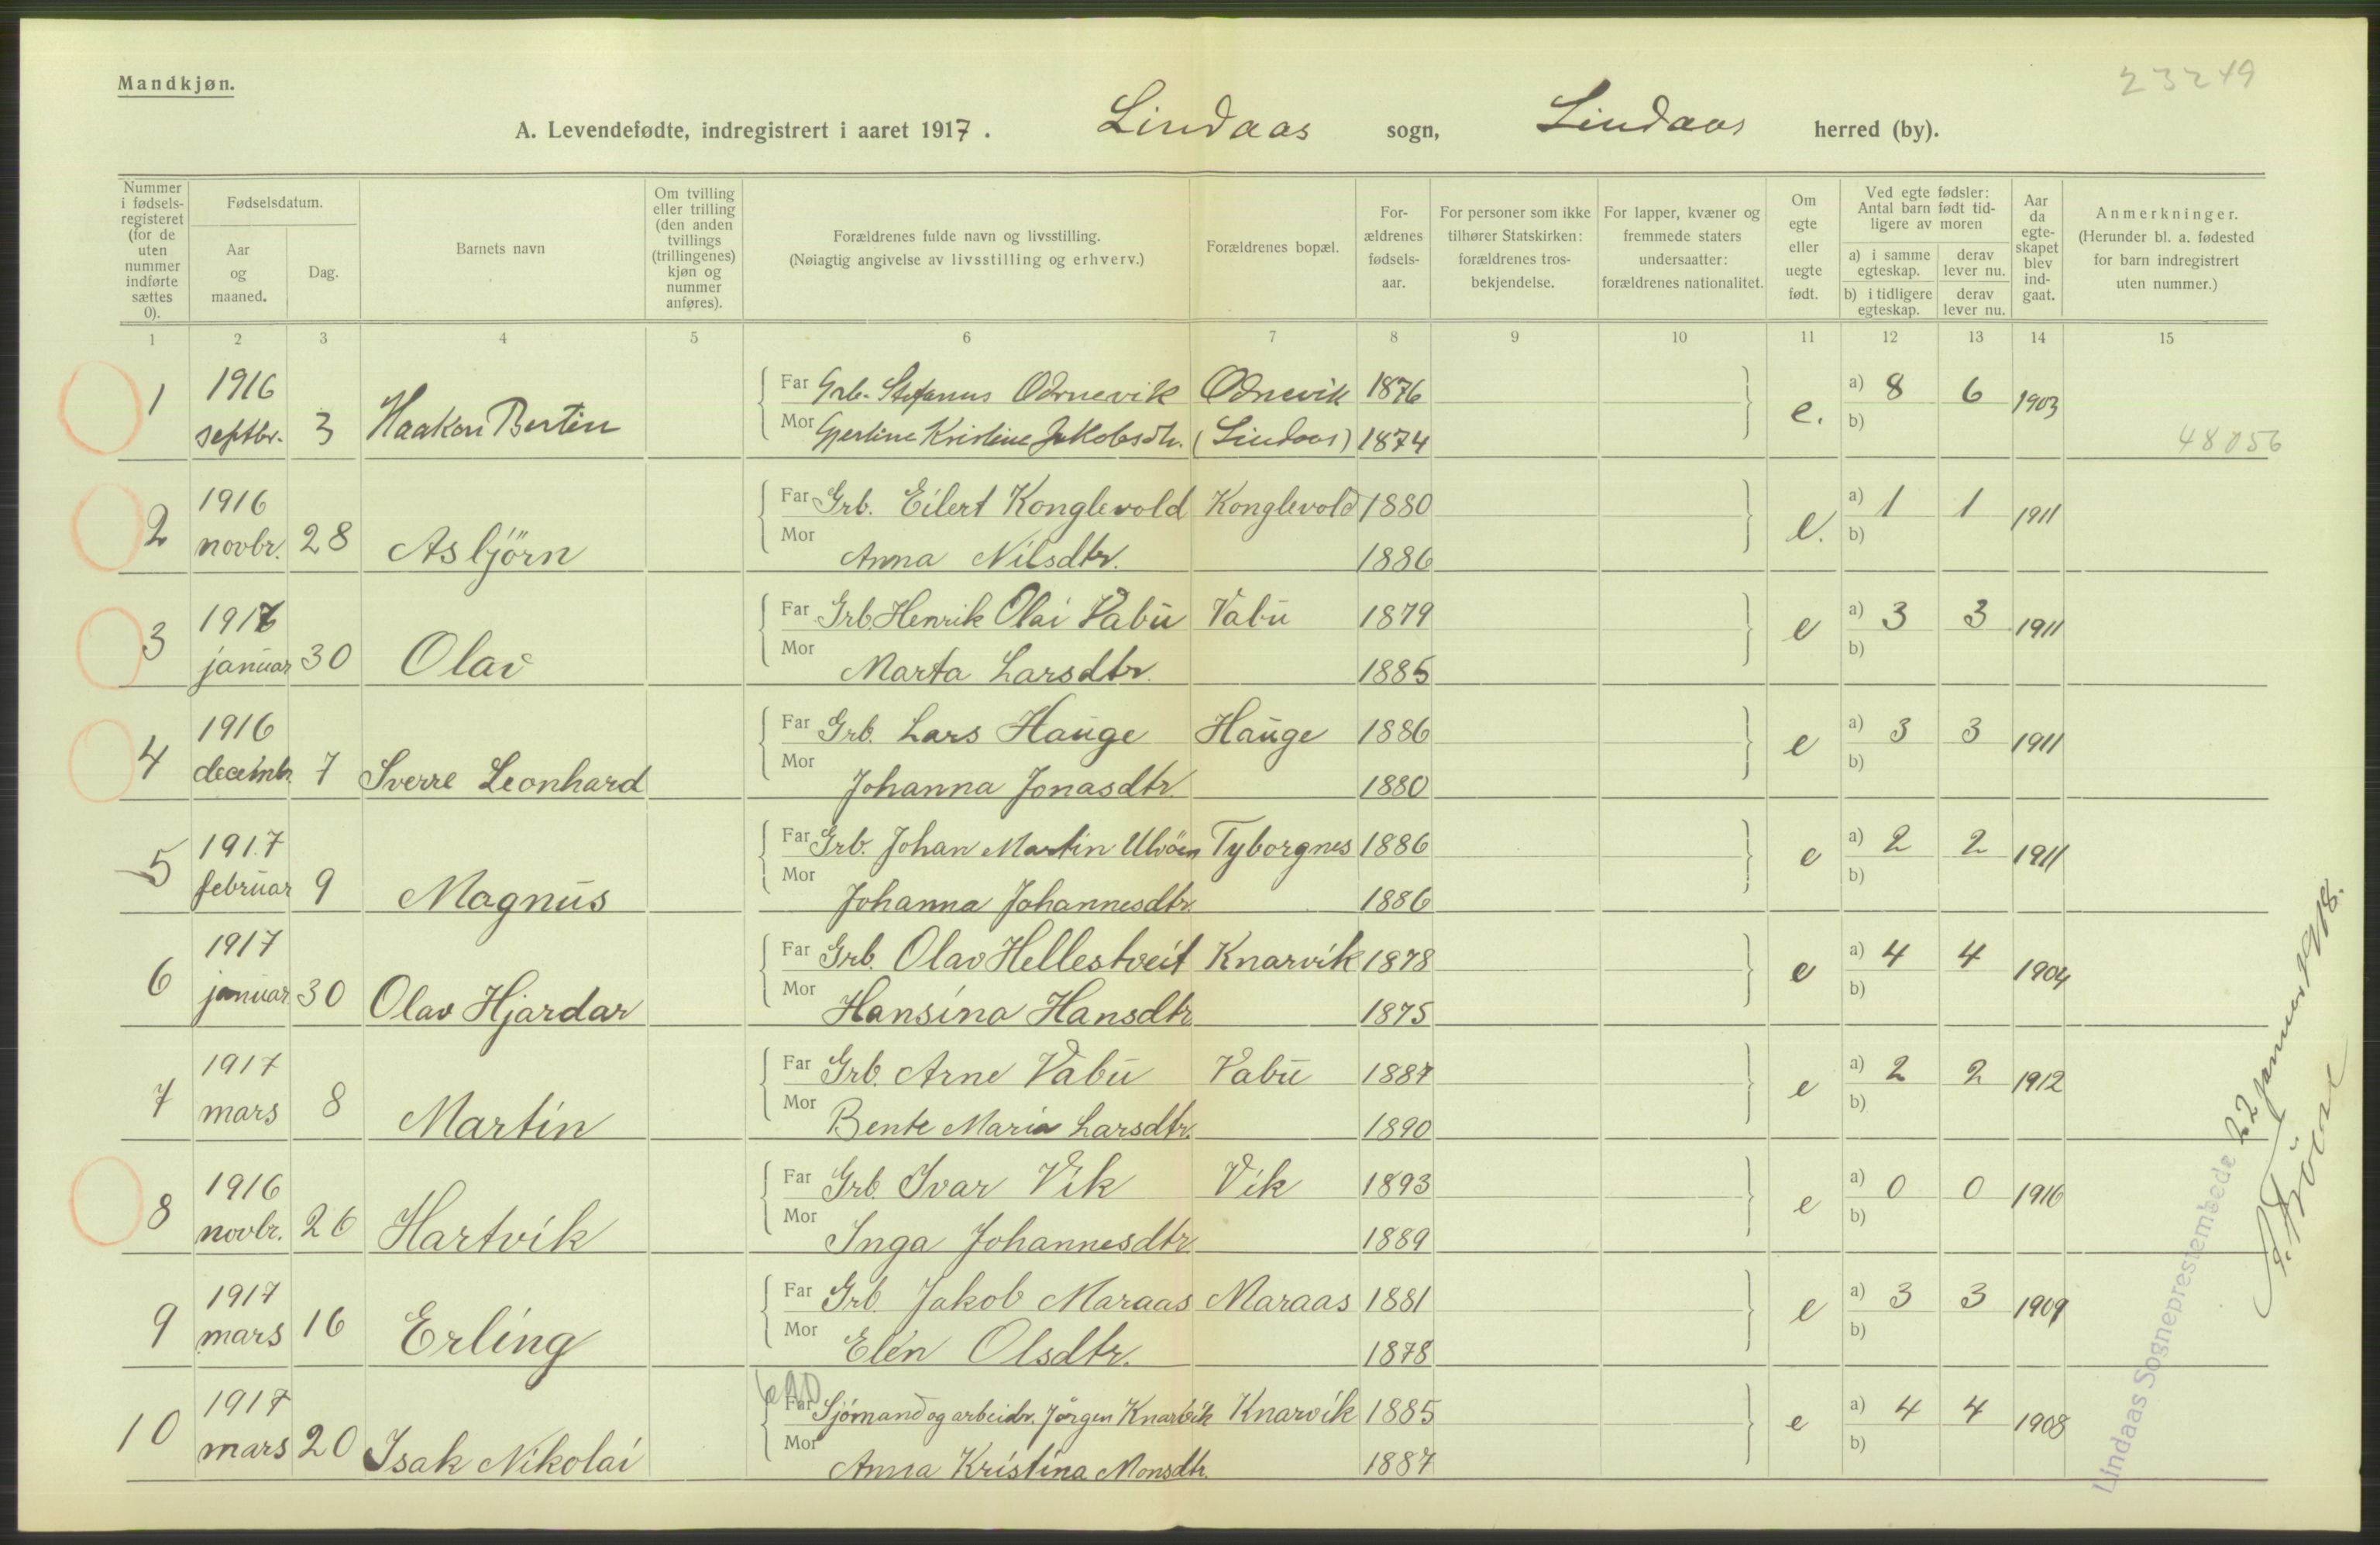 Mandkjøn.
23249
A. Levendefødte, indregistrert i aaret 1917. Lindaas sogn, Lindaas herred (by).
Nummer i fødsels-registeret (for de uten nummer indførte sættes 0).
Fødselsdatum.
Aar og maaned.
Dag.
Barnets navn
Om tvilling eller trilling (den anden tvillings (trillingenes) kjøn og nummer anføres).
Forældrenes fulde navn og livsstilling.
(Nøiagtig angivelse av livsstilling og erhverv.)
Forældrenes bopæl.
For-ældrenes fødsels-aar.
For personer som ikke tilhører Statskirken: forældrenes tros-bekjendelse.
For lapper, kvæner og fremmede staters undersaatter: forældrenes nationalitet.
Om egte eller uegte født.
Ved egte fødsler: Antal barn født tid-ligere av moren
a) i samme egteskap. derav lever nu.
b) i tidligere egteskap. derav lever nu.
Aar da egte-skapet blev ind-gaat.
Anmerkninger.
(Herunder bl. a. fødested for barn indregistrert uten nummer.)
1 2 3 4 5 6 7 8 9 10 11 12 13 14 15
1 1916 septbr. 3 Haakon Bertin Far Grb. Stefanus Odnevik Odnevik 1876 e. a) 8 6 1903
Mor Gjertine Kristine Jakobsdtr. (Lindaas) 1874 b) 48056
2 1916 novbr. 28 Asbjörn Far Grb. Eilert Konglevold Konglevold 1880 e. a) 1 1 1911
Mor Anna Nilsdtr. 1886 b)
3 1917 januar 30 Olav Far Grb. Henrik Olai Vabu Vabu 1879 e a) 3 3 1911
Mor Marta Larsdtr. 1885 b)
4 1916 decembr. 7 Sverre Leonhard Far Grb. Lars Hauge Hauge 1886 e a) 3 3 1911
Mor Johanna Jonasdtr. 1880 b)
5 1917 februar 9 Magnus Far Grb. Johan Martin Ulvöen Tyborgnes 1886 e a) 2 2 1911
Mor Johanna Johannesdtr. 1886 b)
6 1917 januar 30 Olav Hjardar Far Grb. Olav Hellestveit Knarvik 1878 e a) 4 4 1904
Mor Hansina Hansdtr 1875 b)
7 1917 mars 8 Martin Far Grb. Arne Vabu Vabu 1887 e a) 2 2 1912
Mor Bente Maria Larsdtr. 1890 b)
8 1916 novbr. 26 Hartvik Far Grb. Ivar Vik Vik 1893 e a) 0 0 1916
Mor Inga Johannesdtr. 1889 b)
9 1917 mars 16 Erling Far Grb. Jakob Maraas Maraas 1881 e a) 3 3 1909
Mor Elén Olsdtr. 1878 b)
10 1917 mars 20 Isak Nikolai Far Sjömand og arbeidr. Jörgen Knarvik Knarvik 1885 e a) 4 4 1908
Mor Anna Kristina Monsdtr. 1887 b)
Lindaas Sogneprestembede 22 januar 1918.